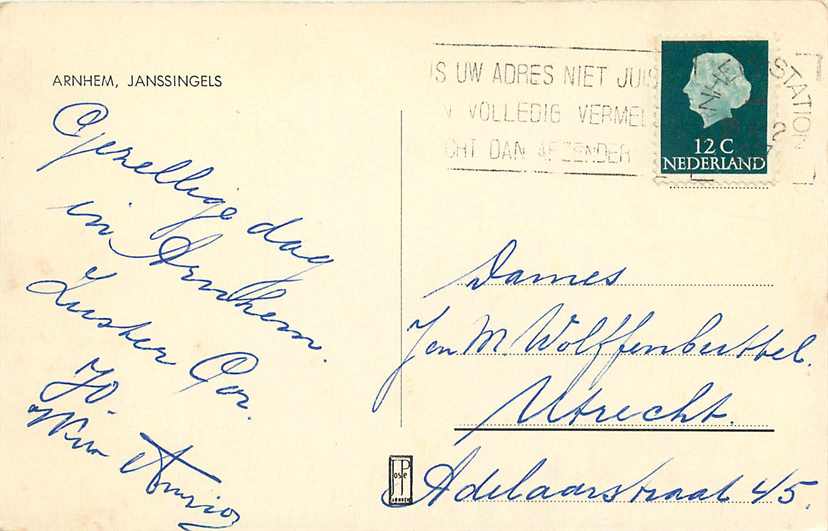 ARNHEM, JANSSINGELS
Gezellige dag
in Arnhem.
Zuster Cor.
Jo
Wim
IS UW ADRES NIET JUIS
VOLLEDIG VERMEL
CHT DAN AFZENDER
STATION
12 C
NEDERLAND
Dames
J en M Wolffenbuttel.
Utrecht.
Adelaarstraat 45.